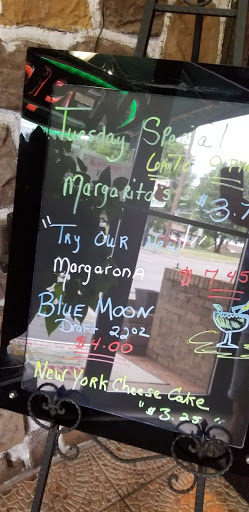 Tuesday Special
6am to 9pm
Margarita's $3.7
"Try our New!!
Margarona $7.45
Blue Moon
Draft 22oz
$4.00
New York Cheese Cake
"$3.25"